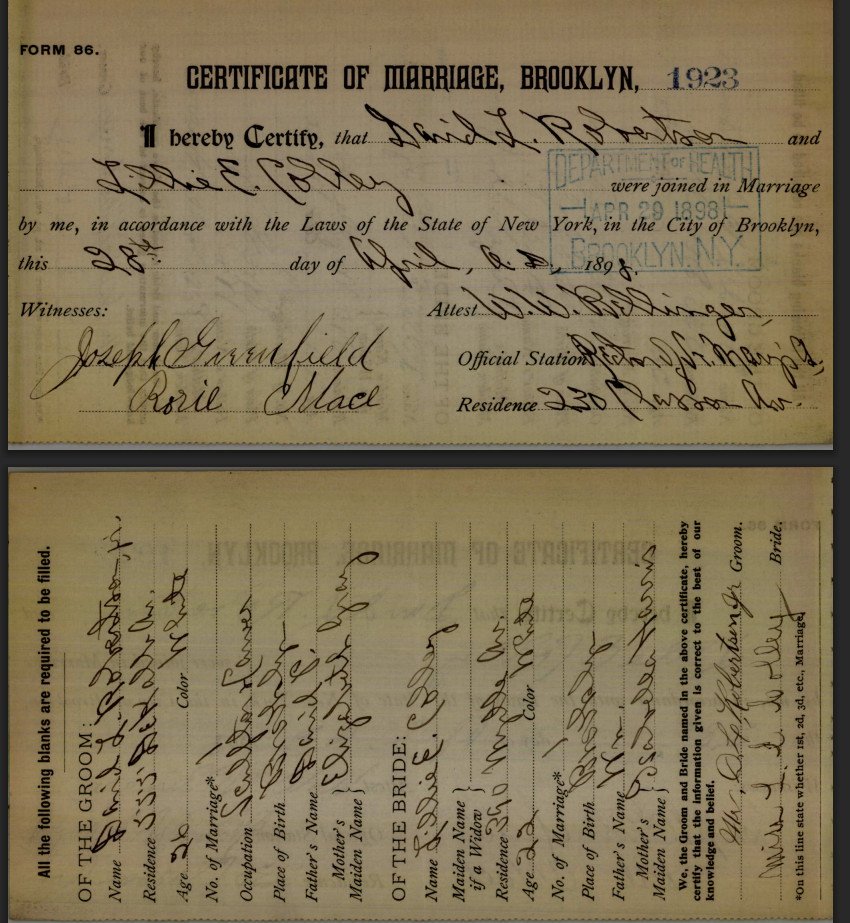 FORM 86.
CERTIFICATE OF MARRIAGE, BROOKLYN, 1923
I hereby Certify, that David L. Robertson and
Lillie E. Colley were joined in Marriage
by me, in accordance with the Laws of the State of New York, in the City of Brooklyn,
this 28th day of April, A.D., 1898.
DEPARTMENT OF HEALTH
APR 29 1898
BROOKLYN. N.Y.
Witnesses: Attest W. W. Bellinger,
Joseph Greenfield Official Station Rector of St. Mary's
Rosie Mace Residence 230 Classon Av.
All the following blanks are required to be filled.
OF THE GROOM:
Name David L. Robertson, Jr.
Residence Av.
Age 26 Color White
No. of Marriage* 1
Occupation
Place of Birth
Father's Name David C.
Mother's Maiden Name Elizabeth
OF THE BRIDE:
Name Lillie E. Colley
Maiden Name if a Widow
Residence Av.
Age 22 Color White
No. of Marriage* 1
Place of Birth
Father's Name Wm.
Mother's Maiden Name Isabella Harris
We, the Groom and Bride named in the above certificate, hereby
certify that the information given is correct to the best of our
knowledge and belief.
Mr. D. L. Robertson Jr Groom.
Miss L. E. Colley Bride.
*On this line state whether 1st, 2d, 3d, etc., Marriage